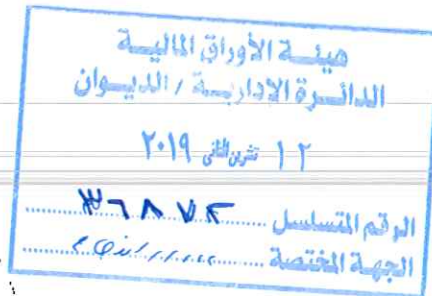 هيئة الأوراق المالية
الدائرة الإدارية / الديوان
١٢ تشرين الثاني ٢٠١٩
الرقم المتسلسل ٣٦٨٧٢
الجهة المختصة